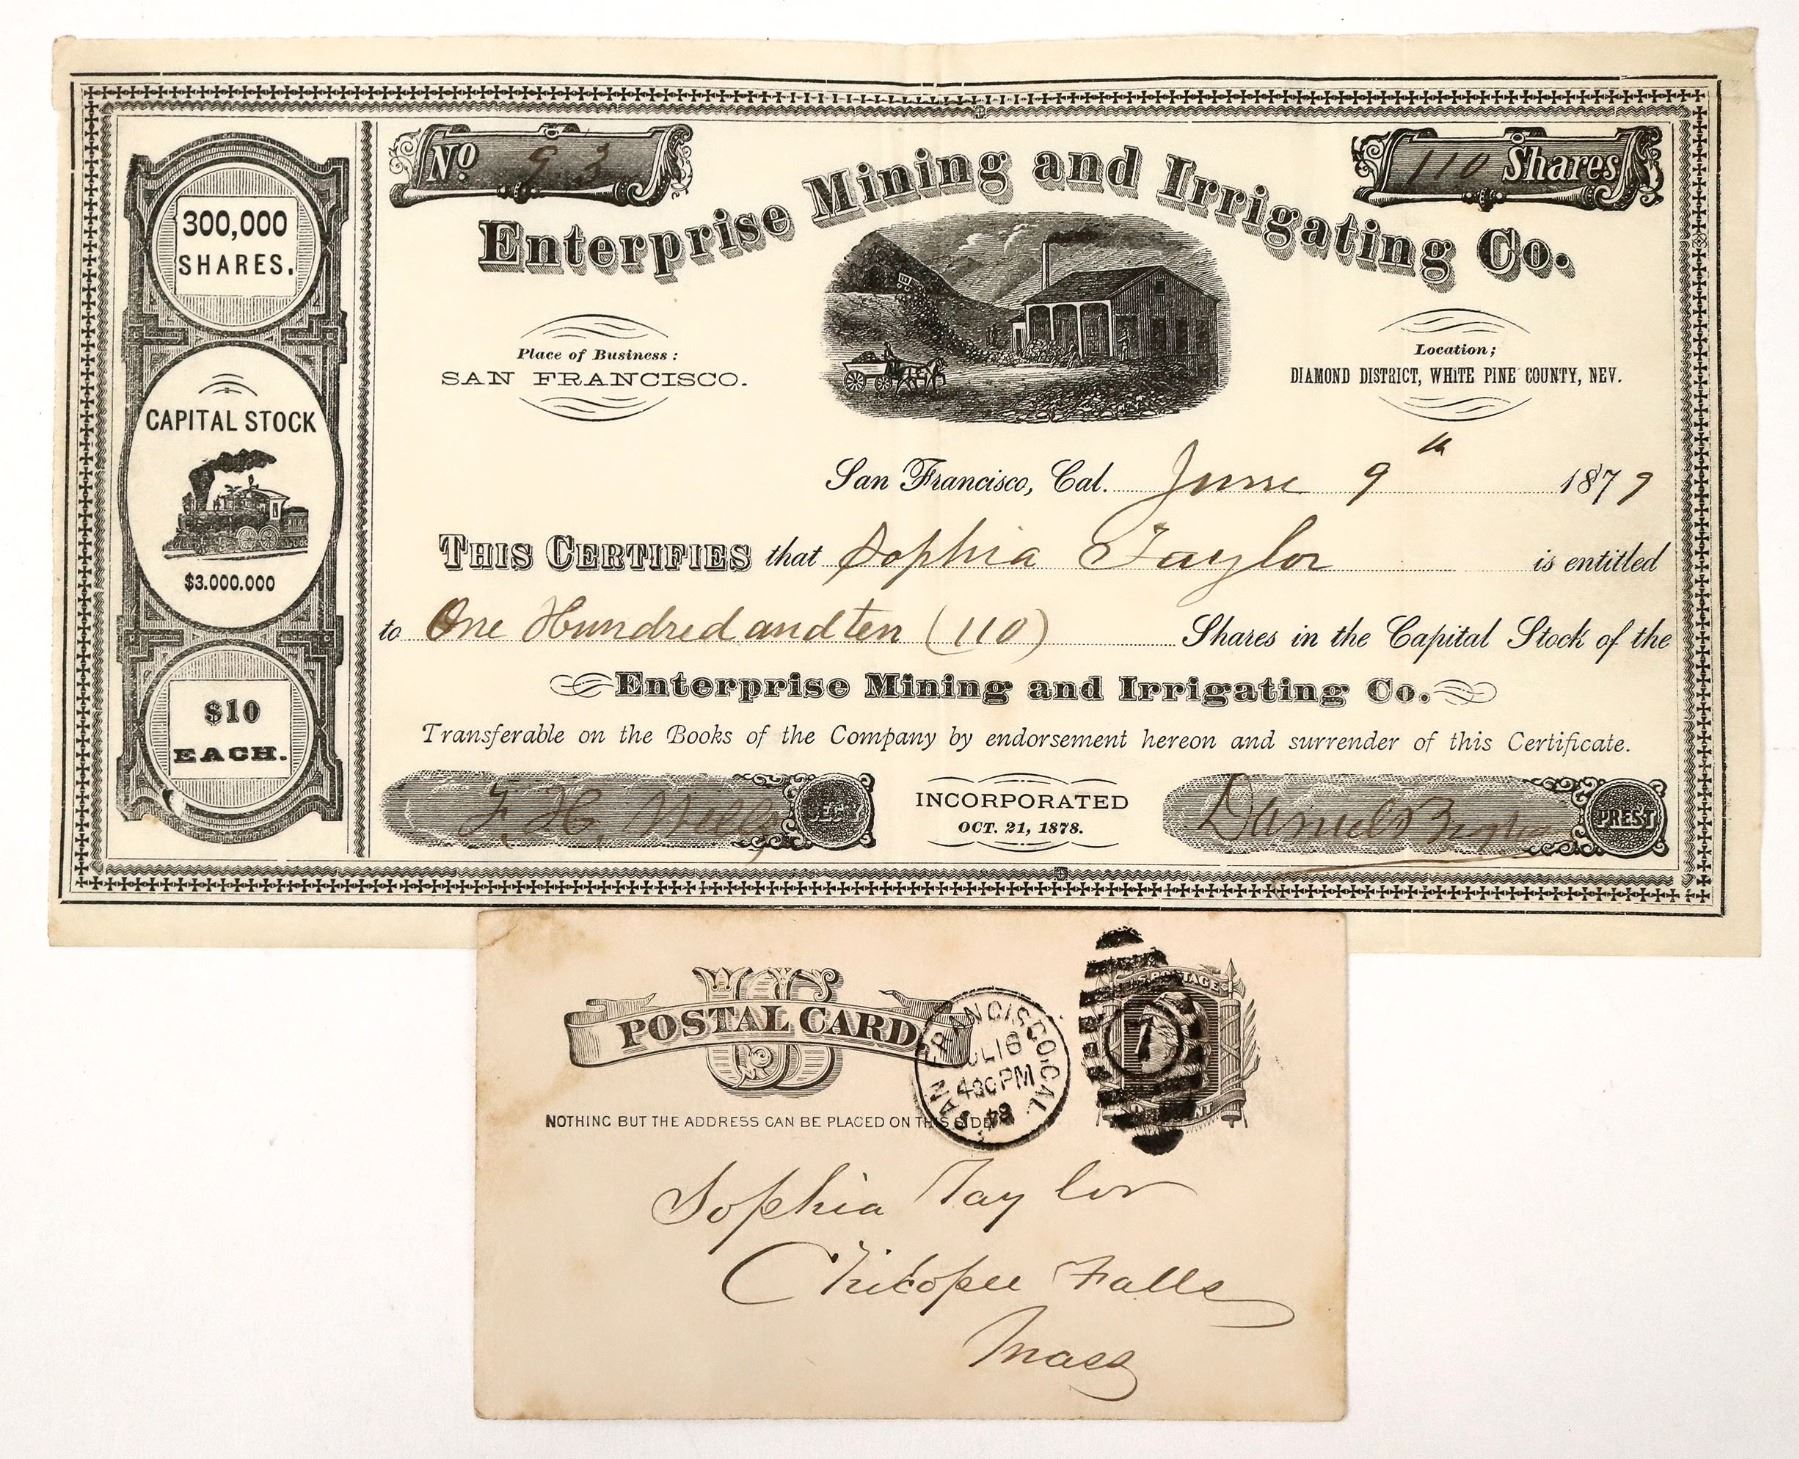 No 93
110 Shares
Enterprise Mining and Irrigating Co.
300,000
SHARES.
CAPITAL STOCK
$3.000.000
$10
EACH.
Place of Business:
SAN FRANCISCO.
Location;
DIAMOND DISTRICT, WHITE PINE COUNTY, NEV.
San Francisco, Cal. June 9th 1879
THIS CERTIFIES that Sophia Taylor is entitled
to One Hundred and ten (110) Shares in the Capital Stock of the
Enterprise Mining and Irrigating Co.
Transferable on the Books of the Company by endorsement hereon and surrender of this Certificate.
F. H. Wells SECY
INCORPORATED
OCT. 21, 1878.
Daniel PREST
U S
POSTAL CARD
NOTHING BUT THE ADDRESS CAN BE PLACED ON THIS SIDE
SAN FRANCISCO, CAL.
JUL 16
430 PM
U.S. POSTAGE
7
ONE CENT
Sophia Taylor
Chicopee Falls
Mass